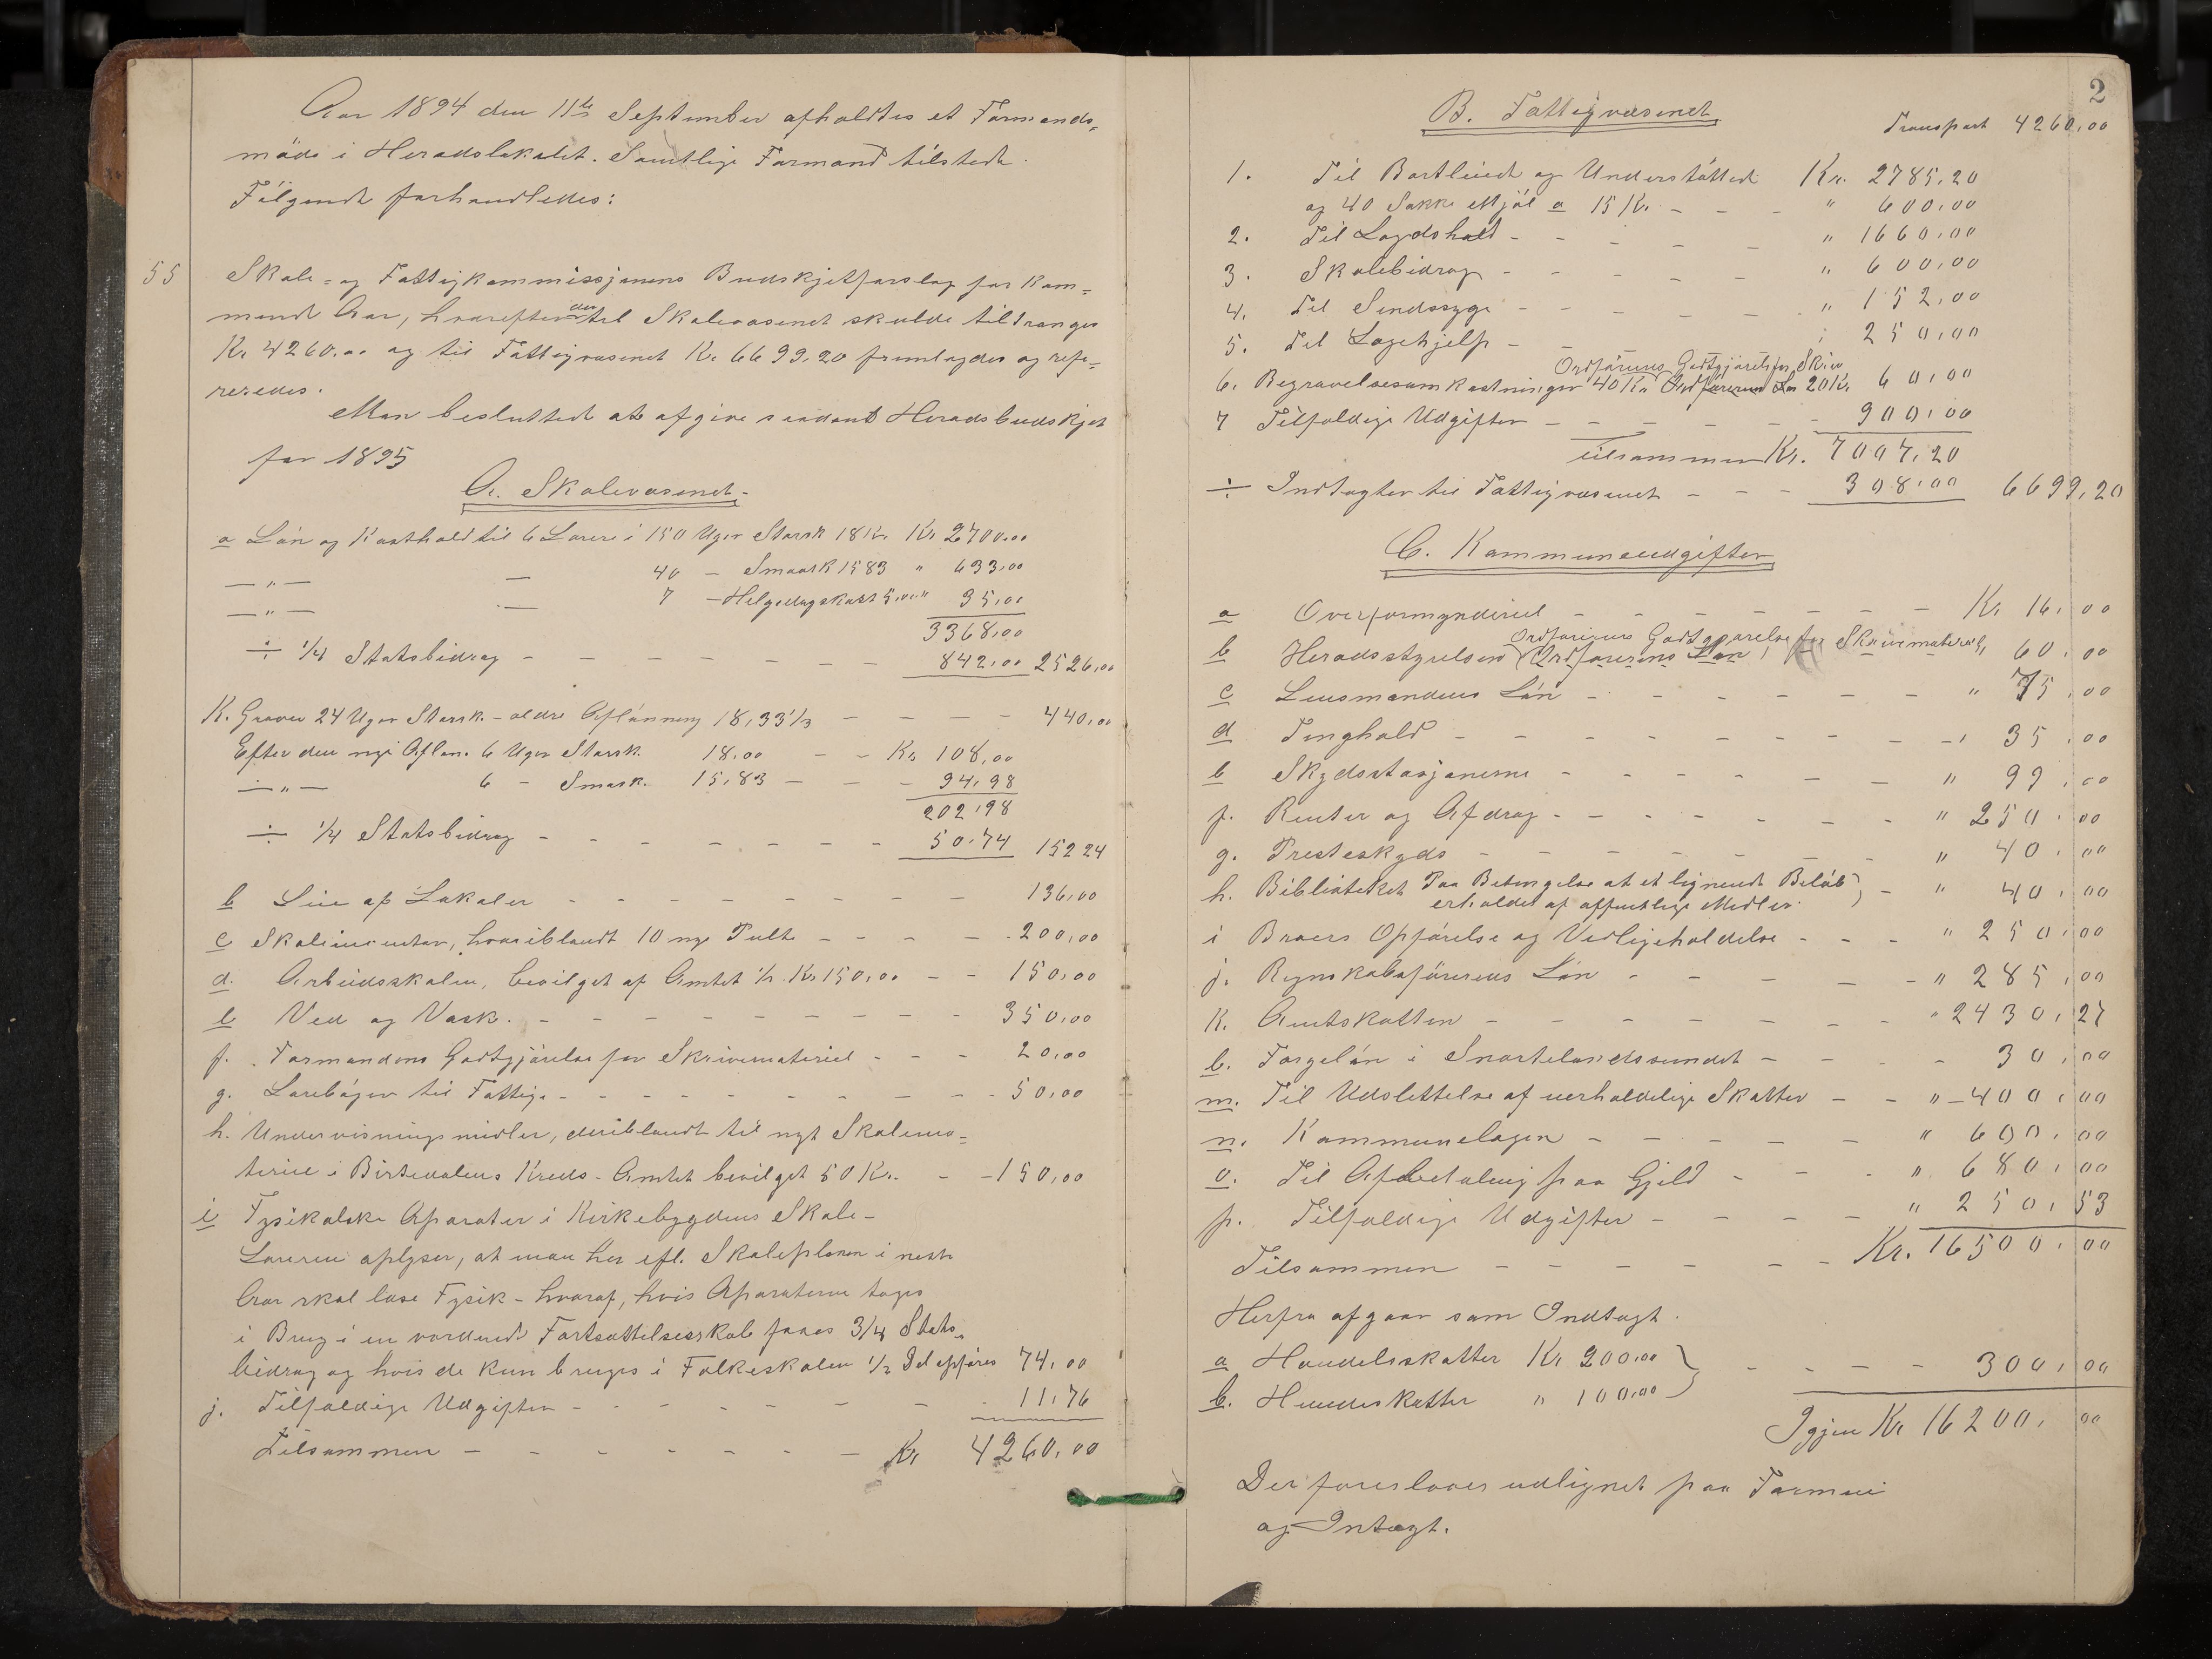 Aar 1894 den 11te September afholdtes et Formands-
möde i Heradslokalet. Samtlige Formænd tilstede.
Följende forhandledes:
55 Skole- og Fattigkommissjonens Budskjetforslag for kom-
mende Aar, hvorefter der til Skolevæsenet skulde tiltrænges
Kr 4260.00 og til Fattigvæsenet Kr. 6699,20 fremlagdes og refe-
reredes.
Man besluttede at afgive saadant Heradsbudskjet
for 1895
A. Skolevæsenet-
a Lön og Kosthold til 6 Lærere i 150 Uger Storsk 18 Kr. Kr. 2700.00
— „ — — 40 — Smaask 1583 " 633,00
— „ — — 7 — Helgedagskost 5,00 " 35,00
3368,00
÷ 1/4 Statsbidrag - - - - - - - 842,00 2526,00
K. Graver 24 Uger Storsk. - ældre Aflönning 18,33 1/3 - - - - 440,00
Efter den nye Aflön. 6 Uger Storsk. 18.00 - - Kr. 108,00
— „ — 6 - Smask. 15,83 - - - 94,98
202,98
÷ 1/4 Statsbidrag - - - - - - - 50.74 152 24
b Leie af Lokaler - - - - - - - - 136,00
c Skoleinventar, hvoriblandt 10 nye Pulte - - - - 200,00
d. Arbeidsskolen, bevilget af Amtet 1/2 Kr. 150,00 - - 150,00
e Ved og Vask. - - - - - - - - - 350,00
f. Formandens Godtgjörelse for Skrivemateriel - - - 20,00
g. Læreböger til Fattige - - - - - - - - 50,00
h. Undervisningsmidler, deriblandt til nyt Skolema-
teriel i Birtedalens Kreds - Amtet bevilget 50 Kr. - - 150,00
i Fysikalske Aparater i Kirkebygdens Skole-
Læreren oplyser, at man her efl. Skoleplanen i neste
Aar skal læse Fysik - hvoraf, hvis Aparaterne tages
i Brug i en vordende Fortsættelsesskole faaes 3/4 Stats-
bidrag og hvis de kun bruges i Folkeskolen 1/2 Del opföres 74,00
j. Tilfældige Udgifter - - - - - - - 11,76
Tilsammen - - - - - - - Kr 4260,00
2
B. Fattigvæsenet.
Transport 4260,00
1. Til Bortleiede og Understöttede Kr. 2785,20
og 40 Sække Mjöl a 15 Kr. - - - " 600,00
2. Til Lægdshold - - - - - " 1660,00
3. Skolebidrag - - - - - " 600,00
4. Til Sindssyge - - - - - - " 152,00
5. Til Lægehjelp - - - - - " 250,00
Ordförerens Godtgjörelse for Skriv
6. Begravelsesomkostninger 40 Kr. Ordförerens Lön 20 Kr. 60,00
7 Tilfældige Udgifter - - - - - - 900,00
Tilsammen Kr. 7007,20
÷ Indtægter til Fattigvæsenet - - - 308,00 6699,20
C. Kommuneudgifter
a Overformynderiet - - - - - - - Kr 16,00
Ordförerens Godtgjörelse for Skrivemateriel
b Heradsstyrelsen Ordförerens Lön 60,00
c Lensmandens Lön - - - - - - " 75,00
d Tinghold - - - - - - - - - 35,00
e Skydsstasjonerne - - - - - - " 99,00
f. Renter og Afdrag - - - - - - - " 250,00
g. Presteskyds - - - - - - - " 40,00
h. Biblioteket Paa Betingelse at et lignende Belöb - " 40,00
erholdes af offentlige Midler.
i Broers Opförelse og Vedligeholdelse - - - " 250,00
j. Regnskabsförerens Lön - - - - - - " 285,00
k. Amtskatten - - - - - - - " 2430,27
l. Færgelön i Snartelandssundet - - - - 30,00
m. Til Udslettelse af uerholdelige Skatter - - " - 400,00
n. Kommunelægen - - - - - - " 600,00
o. Til Afbetaling paa Gjeld - - - " 680,00
p. Tilfældige Udgifter - - - - - " 250,53
Tilsammen - - - - - - - Kr. 16500,00
Herfra afgaar som Indtægt.
a Handelsskatter Kr 200,00 } - - - - 300,00
b. Hundeskatter " 100,00
Igjen Kr 16200,00
Der foreslaaes udlignet paa Formue
og Intægt.